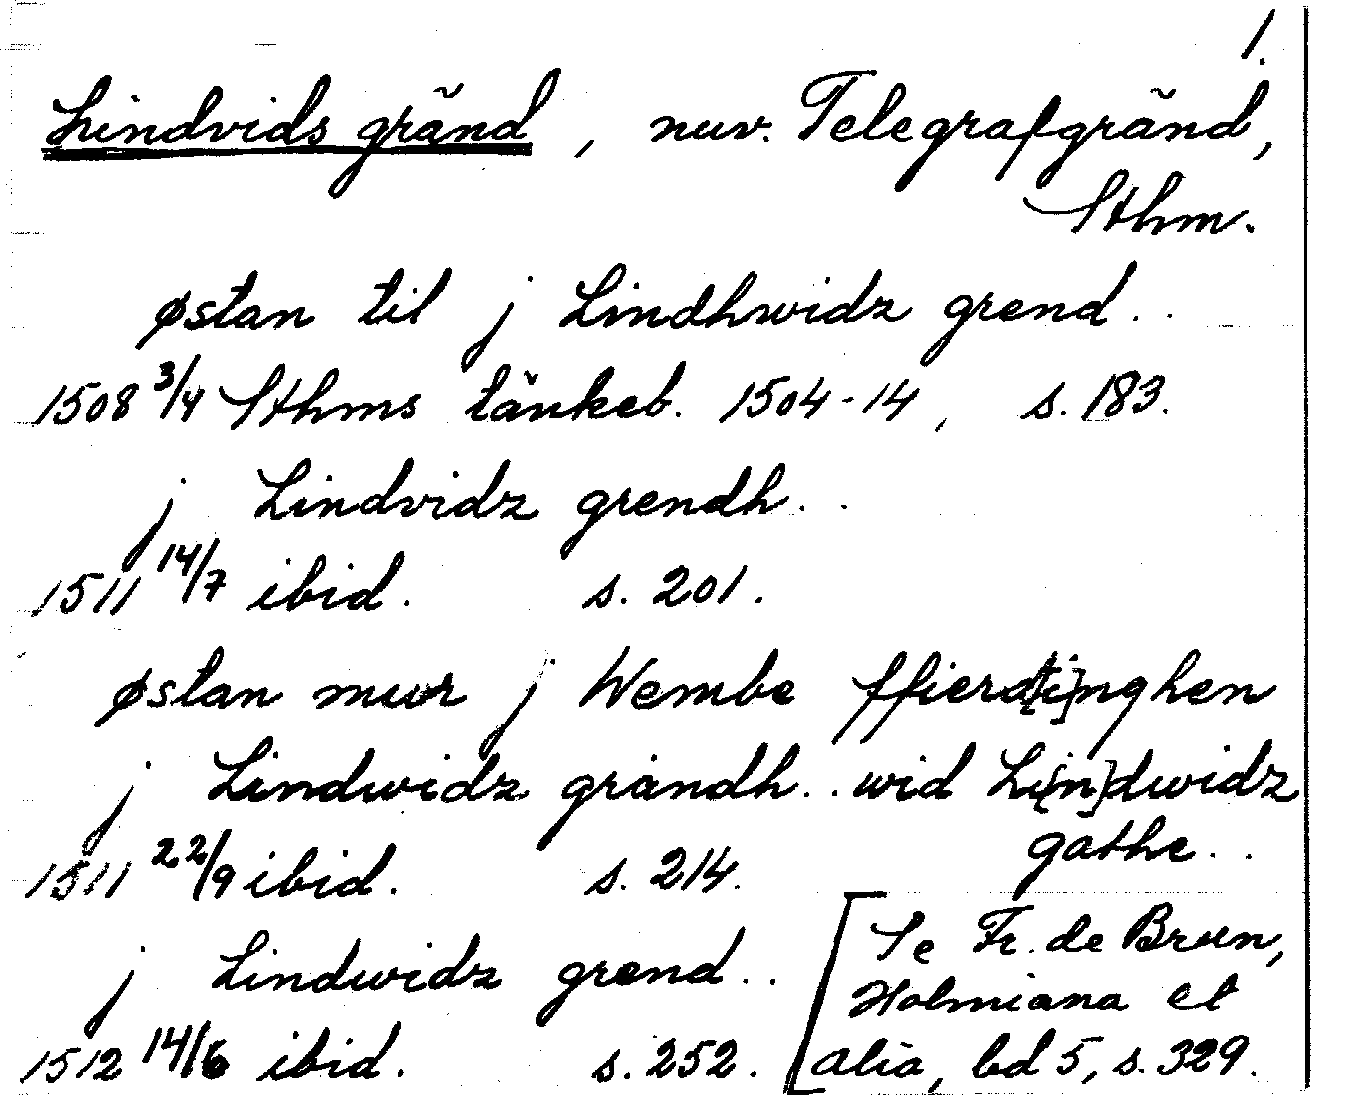 1.
Lindvids gränd, nuv. Telegrafgränd,
Sthm.
østan til j Lindhwidz grend..
1508 3/4 Sthms tänkeb. 1504-14, s. 183.
j Lindvidz grendh..
1511 14/7 ibid. s. 201.
østan mur j Wembe ffierd[ti]nghen
j Lindwidz grändh.. wid Li[n]dwidz
gathe..
1511 22/9 ibid. s. 214.
j Lindwidz grend..
1512 14/6 ibid. s. 252.
[Se Fr. de Brun,
Holmiana et
alia, bd 5, s. 329.